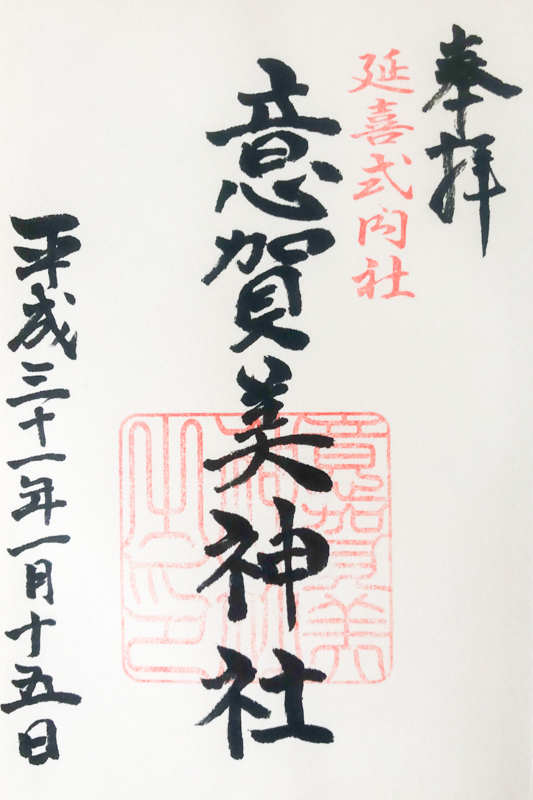 奉拝
延喜式内社
意賀美神社
意賀美
神社
之印
平成三十一年一月十五日